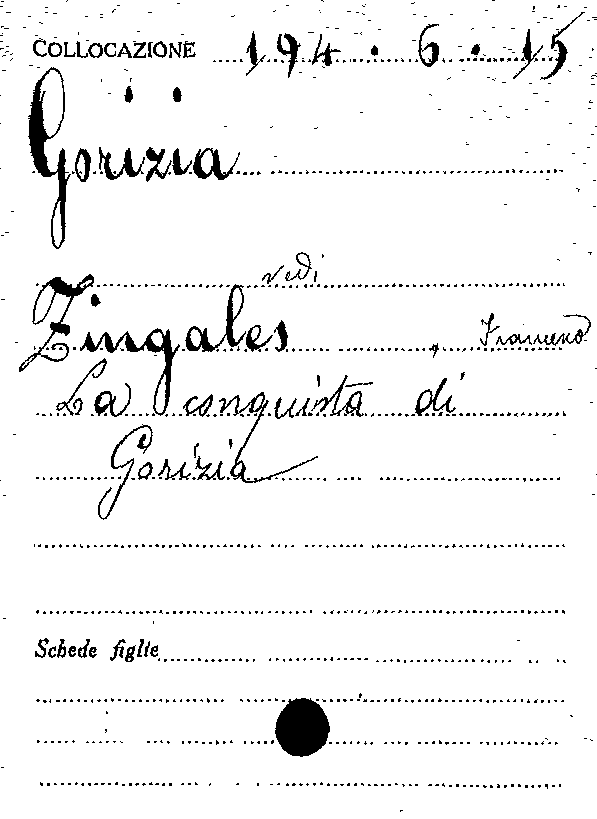 COLLOCAZIONE 194.6.15
Gorizia
vedi
Zingales,
La conquista di
Gorizia
Schede figlie